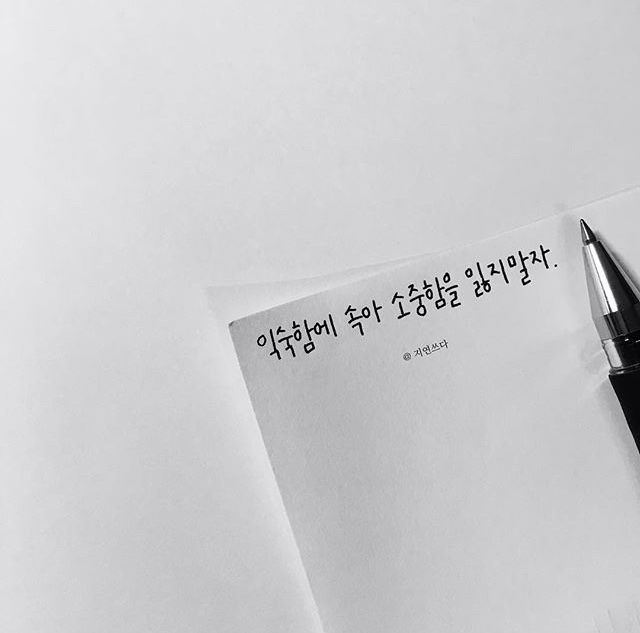 익숙함에 속아 소중함을 잃지말자.
@ 지연쓰다